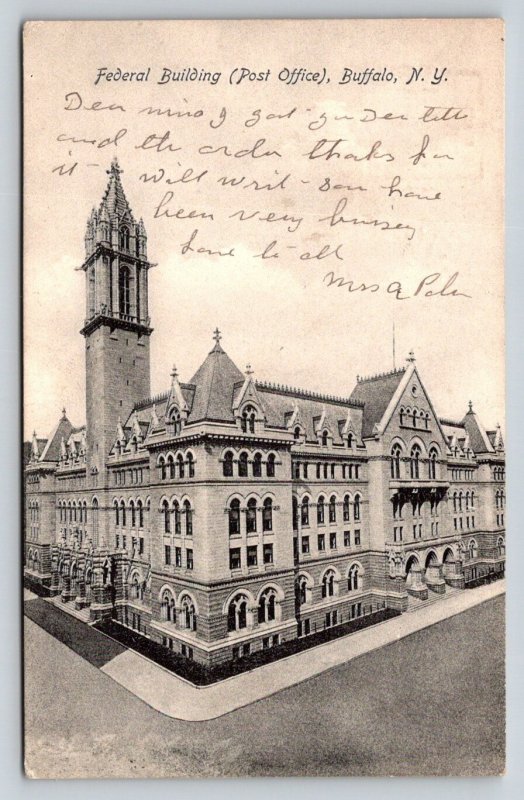 Federal Building (Post Office), Buffalo, N. Y.
Dear mino I got your Dear lett
and the order thanks for
it will writ soon have
been very buisey
Love to all
Mrs A Palm